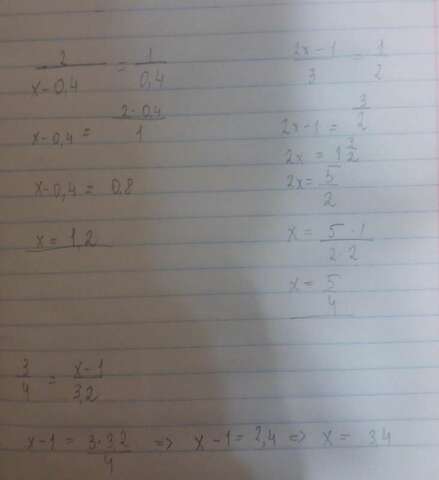 2/(x-0,4) = 1/0,4
x-0,4 = (2·0,4)/1
x-0,4 = 0,8
x = 1,2
(2x-1)/3 = 1/2
2x-1 = 3/2
2x = 1 3/2
2x = 5/2
x = (5·1)/(2·2)
x = 5/4
3/4 = (x-1)/3,2
x-1 = (3·3,2)/4 => x-1 = 2,4 => x = 3,4